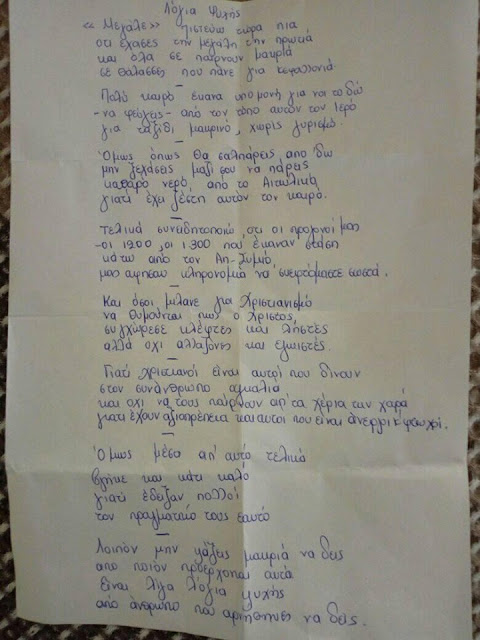 Λόγια Ψυχής
« Μεγάλε» πιστεύω τώρα πια
ότι έχασες την μεγάλη την πρωτιά
και όλα σε παίρνουν μακριά
σε θάλασσες που πάνε για τεφαλλονιά
Πολύ καιρό έκανα υπομονή για να το δώ
-να φεύγεις- από τον τόπο αυτόν τον Ιερό
για ταξίδι μακρινό, χωρίς γυρισμό.
Όμως όπως θα σαλπάρεις από δω
μην ξεχάσεις μαζί σου να πάρεις
καθαρό νερό από το Αιτωλικό
γιατί έχει ζέστη αυτόν τον καιρό.
Τελικά συνειδητοποιώ, ότι οι πρόγονοί μας
-οι 1200, οι 1.300 που έκαναν στάση
κάτω από τον Αη-Συμιό,
μας άφησαν κληρονομιά να σκεφτόμαστε σωστά.
Και όσοι μιλάνε για Χριστιανισμό
να θυμούνται πως ο Χριστός
συγχώρεσε κλέφτες και ληστές
αλλά όχι αλλαζόνες και εγωιστές.
Γιατί χριστιανοί είναι αυτοί που δίνουν
στον συνάνθρωπο αγκαλιά
και όχι να τους παίρνουν απ' τα χέρια την χαρά
γιατί έχουν αξιοπρέπεια και αυτοί που είναι άνεργοι κ' φτωχοί.
Όμως μέσα απ' αυτό τελικά
βγήκε και κάτι καλό
γιατί έδειξαν πολλοί
τον πραγματικό τους εαυτό
Λοιπόν μην ψάξεις μακριά να δεις
από ποιόν προέρχονται αυτά
είναι λίγα λόγια ψυχής
από άνθρωπο που αρνήθηκες να δεις.